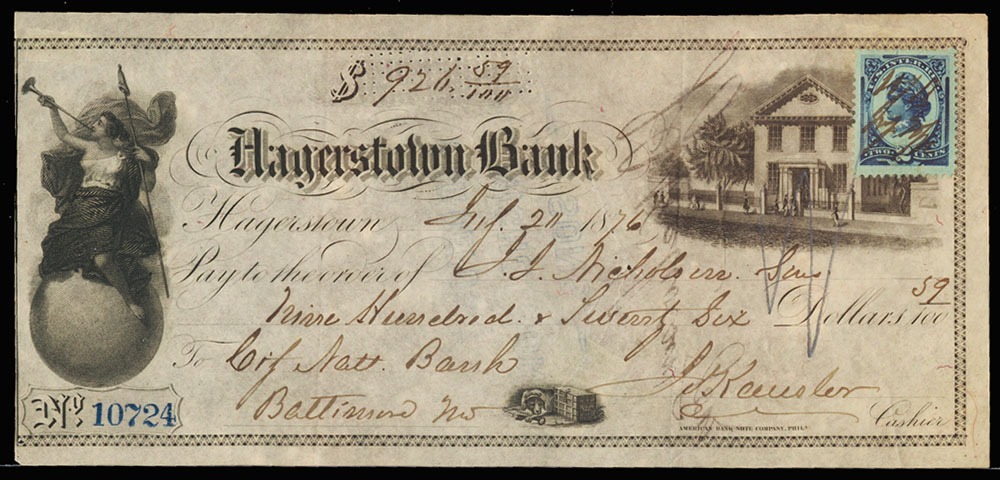 $ 926. 59/100
U.S. INTER. REV.
TWO 2 CENTS
Hagerstown Bank
Hagerstown 211 1876
Pay to the order of J. J. Nicholson Sons
Nine Hundred & Twenty Six Dollars 59/100
To Cit Natl. Bank
Baltimore Md
Kausler
Cashier
No. 10724
AMERICAN BANK NOTE COMPANY, PHILA.